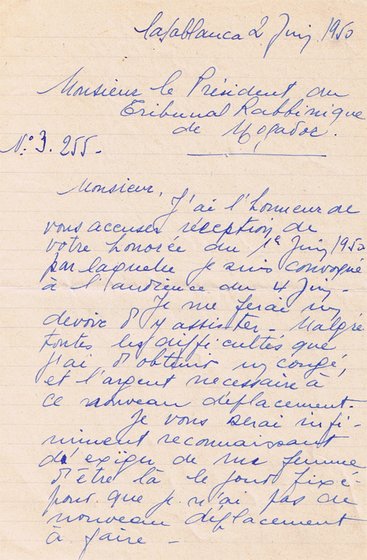 Casablanca 2 Juin 1950
Monsieur le Président du
Tribunal Rabbinique
de Mogador.
N° 3.255-
Monsieur,
J'ai l'honneur de
vous accuser réception de
votre honorée du 1e Juin 1950
par laquelle je suis convoqué
à l'audience du 4 Juin -
Je me ferai un
devoir d'y assister - Malgré
toutes les difficultés que
j'ai d'obtenir un congé,
et l'argent necessaire à
ce nouveau déplacement.
Je vous serai infi-
niment reconnaissant
d'exiger de ma femme
d'être là le jour fixé -
pour que je n'ai pas de
nouveau déplacement
à faire -